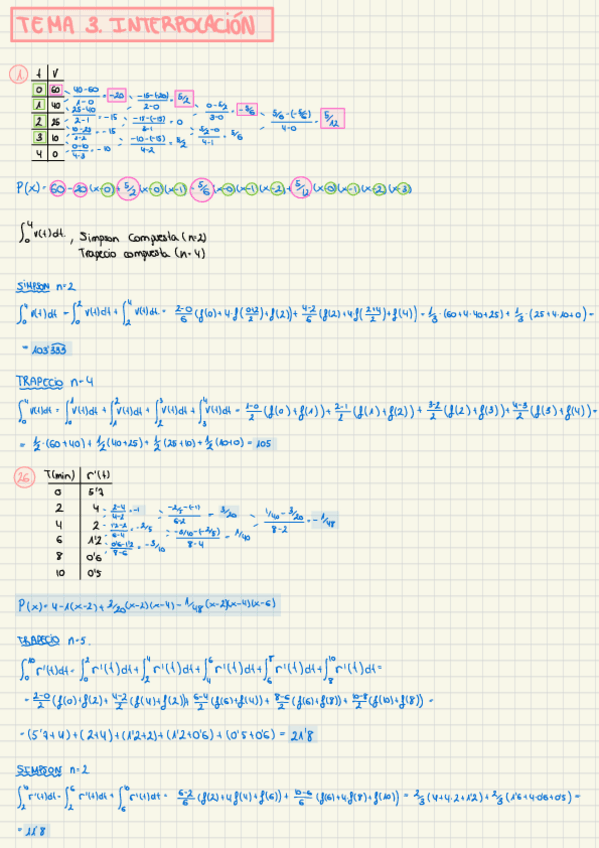 TEMA 3. INTERPOLACIÓN
1
t V
0 60 40-60/1-0 = -20 -15-(-20)/2-0 = 5/2 0-5/2/3-0 = -5/6 5/6-(-5/6)/4-0 = 5/12
1 40 25-40/2-1 = -15 -15-(-15)/3-1 = 0 5/2-0/4-1 = 5/6
2 25 10-25/3-2 = -15 -10-(-15)/4-2 = 5/2
3 10 0-10/4-3 = -10
4 0
P(x) = 60-20(x-0)+5/2(x-0)(x-1)-5/6(x-0)(x-1)(x-2)+5/12(x-0)(x-1)(x-2)(x-3)
∫₀⁴ v(t)dt, Simpson Compuesta (n=2)
Trapecio compuesta (n=4)
SIMPSON n=2
∫₀⁴ v(t)dt = ∫₀² v(t)dt + ∫₂⁴ v(t)dt = 2-0/6 (f(0)+4·f(0+2/2)+f(2)) + 4-2/6 (f(2)+4f(2+4/2)+f(4)) = 1/3·(60+4·40+25) + 1/3·(25+4·10+0) =
= 103'333
TRAPECIO n=4
∫₀⁴ v(t)dt = ∫₀¹ v(t)dt + ∫₁² v(t)dt + ∫₂³ v(t)dt + ∫₃⁴ v(t)dt = 1-0/2 (f(0)+f(1)) + 2-1/2 (f(1)+f(2)) + 3-2/2 (f(2)+f(3)) + 4-3/2 (f(3)+f(4)) =
= 1/2·(60+40) + 1/2(40+25) + 1/2(25+10) + 1/2(10+0) = 105
26
T(min) r'(t)
0 5'7
2 4 2-4/4-2 = -1 -2/5-(-1)/6-2 = 3/20 1/40-3/20/8-2 = -1/48
4 2 1'2-2/6-4 = -2/5 -3/10-(-2/5)/8-4 = 1/40
6 1'2 0'6-1'2/8-6 = -3/10
8 0'6
10 0'5
P(x) = 4-1(x-2)+3/20(x-2)(x-4)-1/48(x-2)(x-4)(x-6)
TRAPECIO n=5.
∫₀¹⁰ r'(t)dt = ∫₀² r'(t)dt + ∫₂⁴ r'(t)dt + ∫₄⁶ r'(t)dt + ∫₆⁸ r'(t)dt + ∫₈¹⁰ r'(t)dt =
= 2-0/2 (f(0)+f(2)) + 4-2/2 (f(4)+f(2)) + 6-4/2 (f(6)+f(4)) + 8-6/2 (f(6)+f(8)) + 10-8/2 (f(10)+f(8)) =
= (5'7+4) + (2+4) + (1'2+2) + (1'2+0'6) + (0'5+0'6) = 21'8
SIMPSON n=2
∫₂¹⁰ r'(t)dt = ∫₂⁶ r'(t)dt + ∫₆¹⁰ r'(t)dt = 6-2/6 (f(2)+4f(4)+f(6)) + 10-6/6 (f(6)+4f(8)+f(10)) = 2/3 (4+4·2+1'2) + 2/3 (1'6+4·0'6+0'5) =
= 11'8